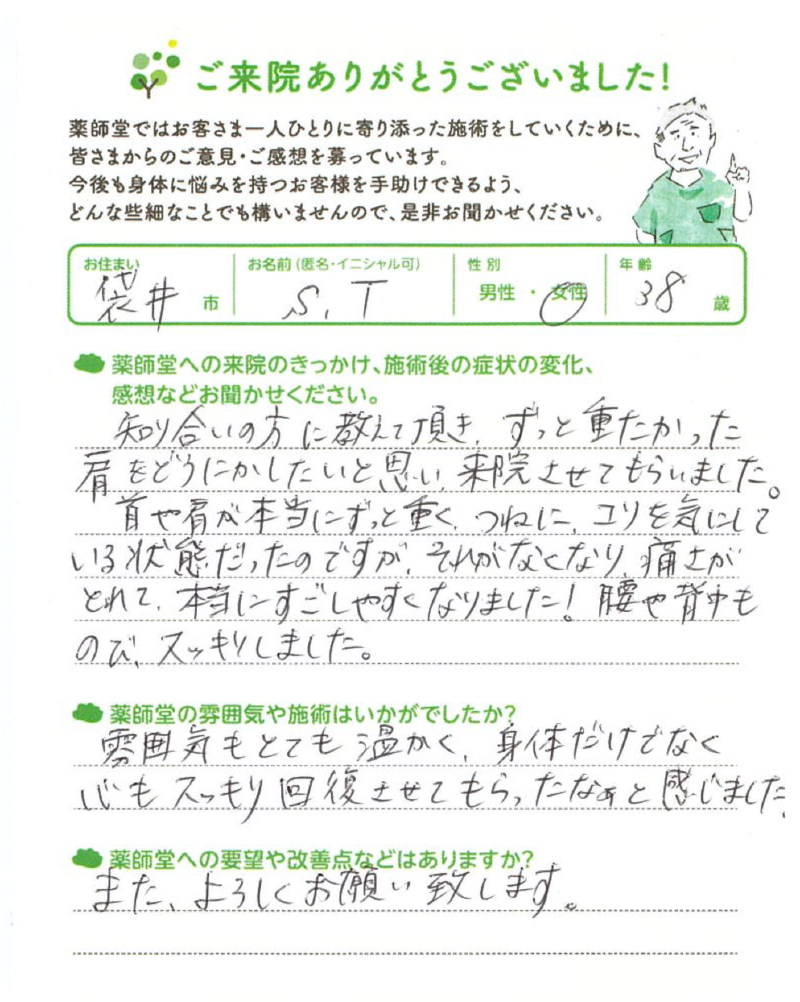 ご来院ありがとうございました!
薬師堂ではお客さま一人ひとりに寄り添った施術をしていくために、
皆さまからのご意見・ご感想を募っています。
今後も身体に悩みを持つお客様を手助けできるよう、
どんな些細なことでも構いませんので、是非お聞かせください。
お住まい お名前(匿名・イニシャル可) 性別 年齢
袋井 市 S.T 男性・女性 38 歳
薬師堂への来院のきっかけ、施術後の症状の変化、
感想などお聞かせください。
知り合いの方に教えて頂き、ずっと重たかった
肩をどうにかしたいと思い来院させてもらいました。
首や肩が本当にずっと重く、つねに、コリを気にして
いる状態だったのですが、それがなくなり、痛さが
とれて、本当にすごしやすくなりました!腰や背中も
のび、スッキリしました。
薬師堂の雰囲気や施術はいかがでしたか?
雰囲気もとても温かく、身体だけでなく
心もスッキリ回復させてもらったなぁと感じました。
薬師堂への要望や改善点などはありますか?
また、よろしくお願い致します。